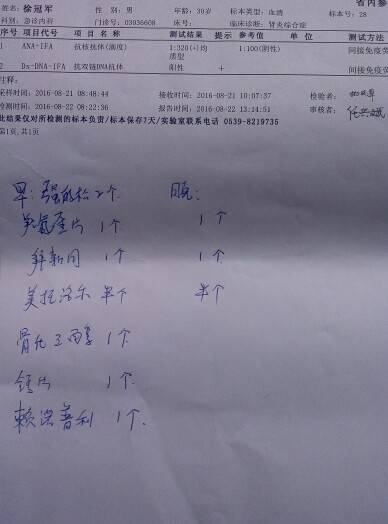 省内参
姓名：徐冠军 性 别：男 年龄：30岁 标本类型：血清 标本号：28
科别： 门诊号：03036608 床号： 临床诊断：肾炎综合症
序号 项目代码 项 目 名 称 测试结果 提示 参考值 单 位 测试方法
1 ANA-IFA 抗核抗体(滴度) 1:320(+)均质型 1:100(阴性) 间接免疫荧
2 Ds-DNA-IFA 抗双链DNA抗体 阳性 + 间接免疫荧
注释：
采样时间：2016-08-21 08:48:44 接收时间：2016-08-21 10:07:37 检验者：
检测时间：2016-08-22 08:22:36 报告时间：2016-08-22 13:14:51 审核者：
此结果仅对所检测的标本负责/标本保存7天/实验室联系电话 0539-8219735
第1页,共1页
早：强的松2个. 晚：
羟氯喹片 1个 1个
拜新同 1个 1个
美托洛尔 半个 半个
骨化三醇 1个.
钙片 1个.
赖诺普利 1个.